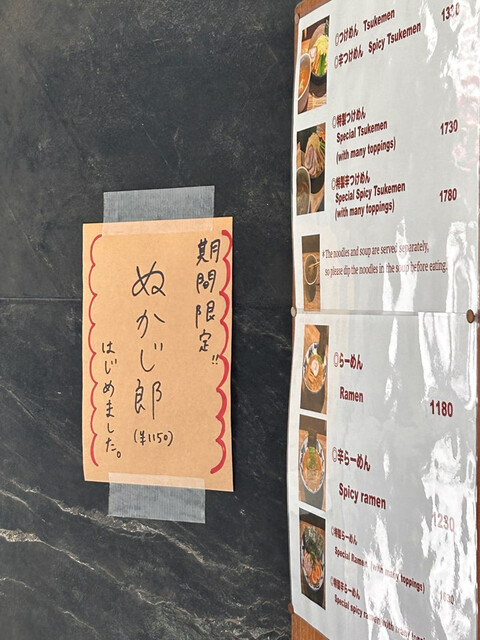 期間限定!!
ぬかじ郎
(¥1150)
はじめました。
◎つけめん Tsukemen
◎辛つけめん Spicy Tsukemen
1330
◎特製つけめん
Special Tsukemen
(with many toppings)
1730
◎特製辛つけめん
Special Spicy Tsukemen
(with many toppings)
1780
*The noodles and soup are served separately,
so please dip the noodles in the soup before eating.
◎らーめん
Ramen
1180
◎辛らーめん
Spicy ramen
1230
◎特製らーめん
Special Ramen (with many toppings)
◎特製辛らーめん
Special spicy ramen with many